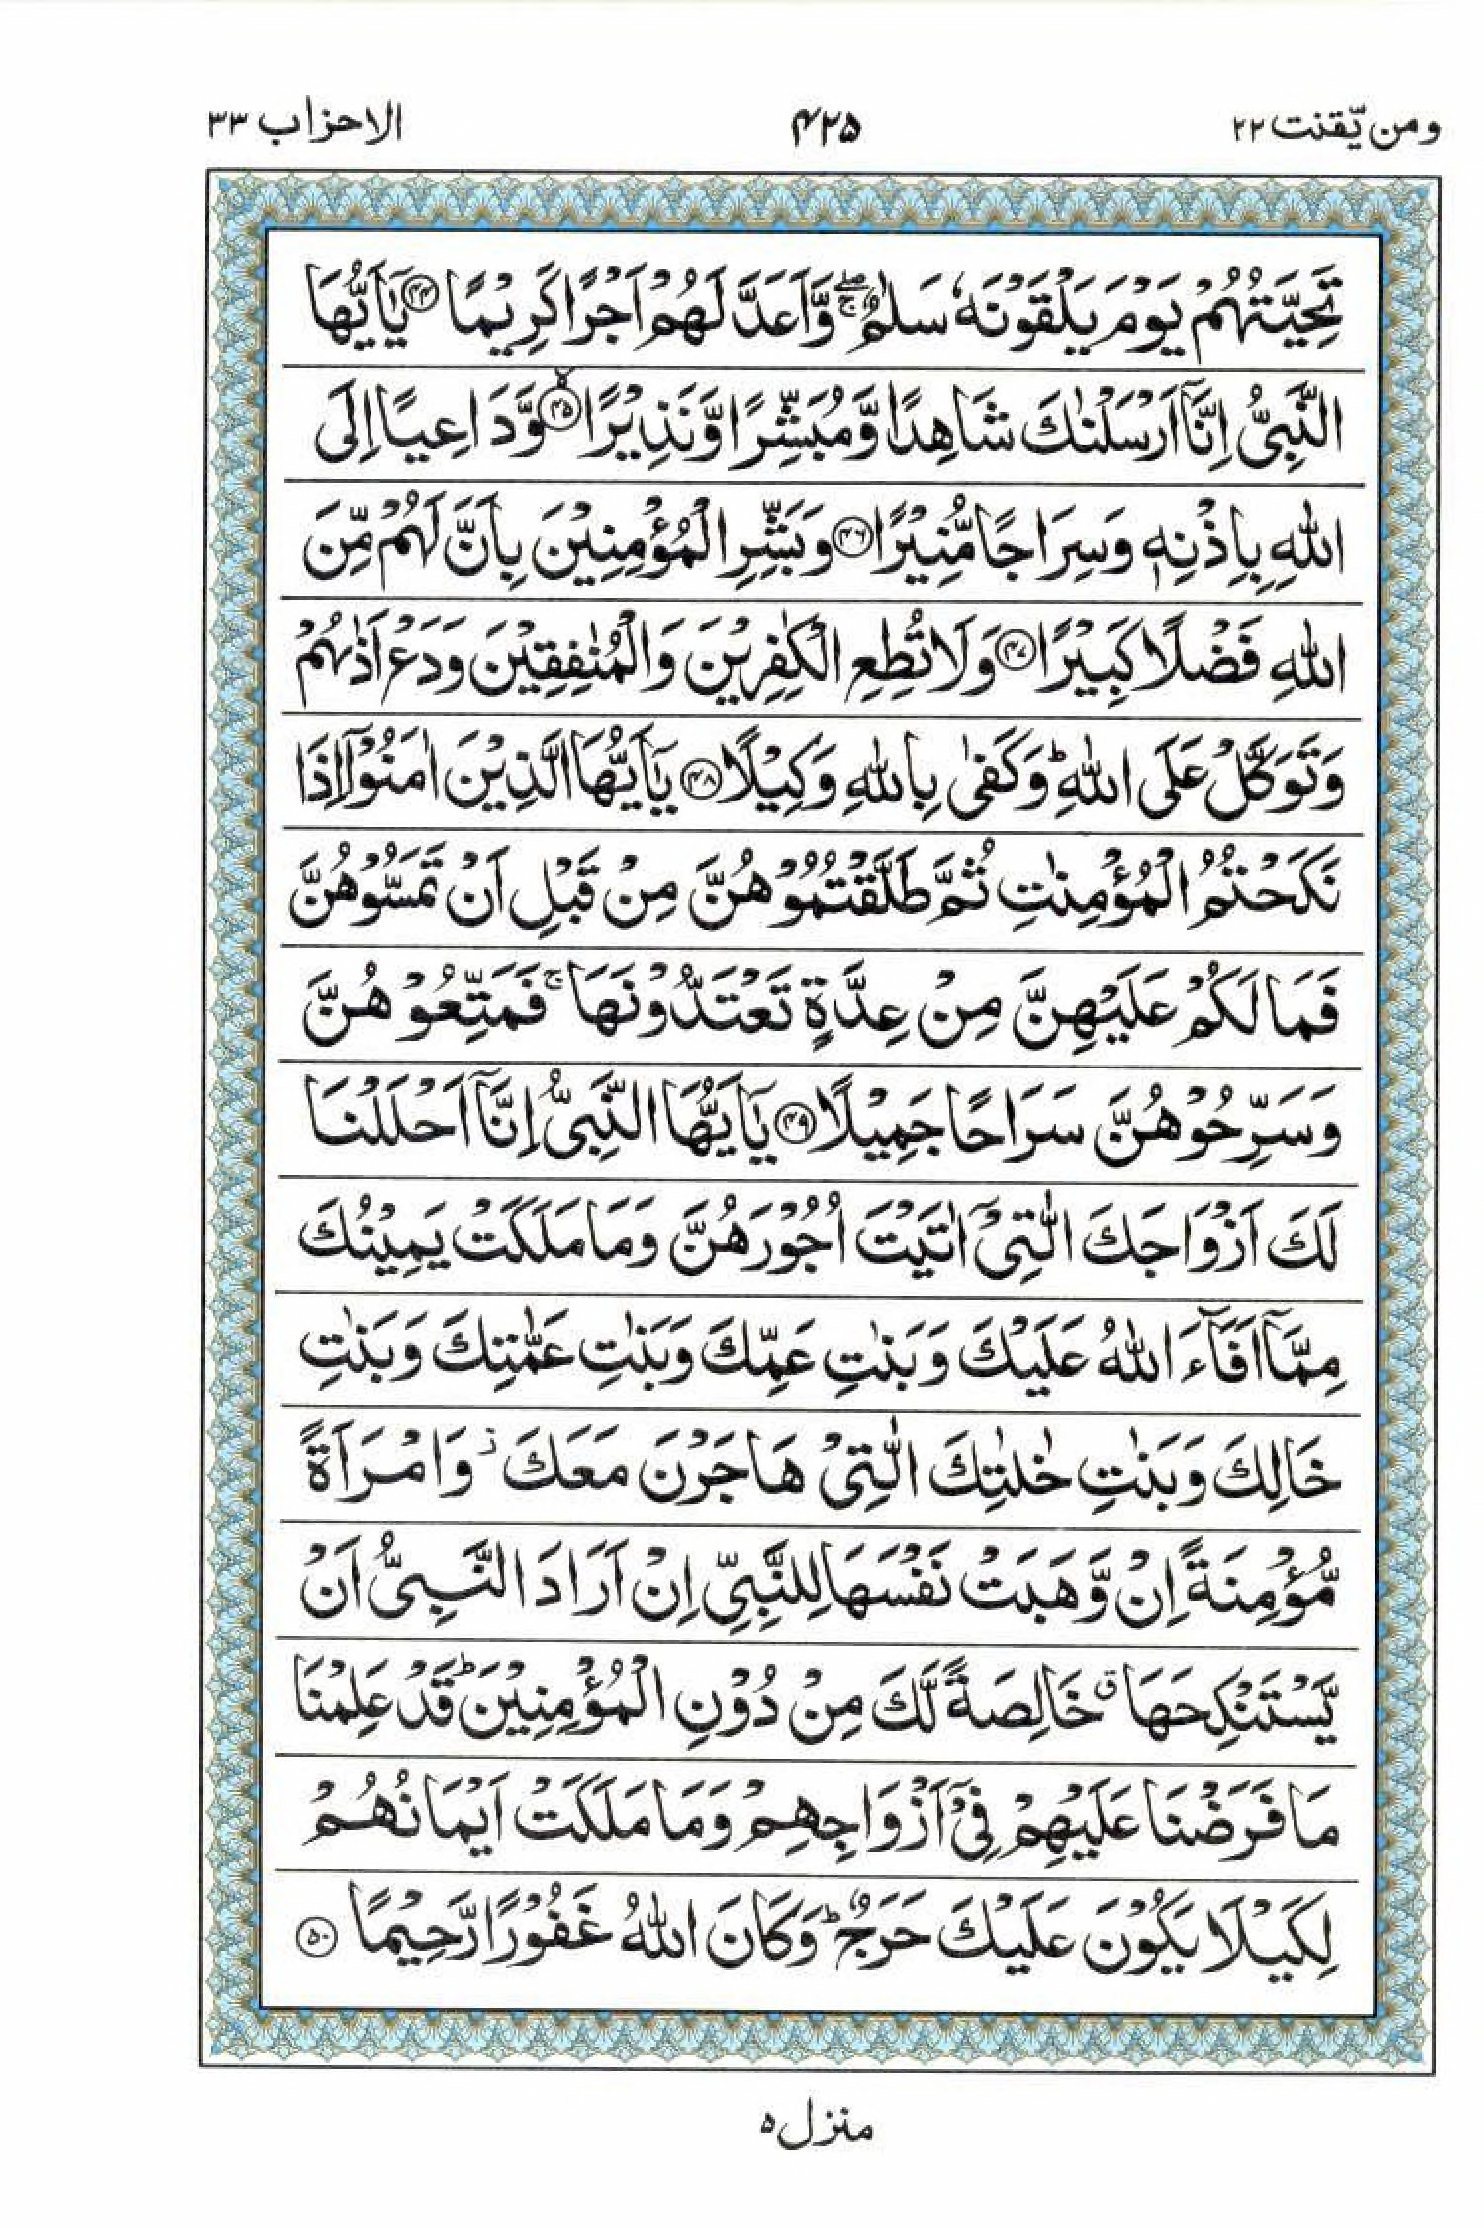 ومن یّقنت ٢٢ ۴۲۵ الاحزاب ٣٣
تَحِيَّتُهُمْ يَوْمَ يَلْقَوْنَهٗ سَلٰمٌ ۖۚ وَّاَعَدَّ لَهُمْ اَجْرًا كَرِيْمًا ﴿۴۴﴾ يٰۤاَيُّهَا
النَّبِيُّ اِنَّاۤ اَرْسَلْنٰكَ شَاهِدًا وَّمُبَشِّرًا وَّنَذِيْرًا ﴿۴۵﴾ۙ وَّدَاعِيًا اِلَى
اللّٰهِ بِاِذْنِهٖ وَسِرَاجًا مُّنِيْرًا ﴿۴۶﴾ وَبَشِّرِ الْمُؤْمِنِيْنَ بِاَنَّ لَهُمْ مِّنَ
اللّٰهِ فَضْلًا كَبِيْرًا ﴿۴۷﴾ وَلَا تُطِعِ الْكٰفِرِيْنَ وَالْمُنٰفِقِيْنَ وَدَعْ اَذٰىهُمْ
وَتَوَكَّلْ عَلَى اللّٰهِ ؕ وَكَفٰى بِاللّٰهِ وَكِيْلًا ﴿۴۸﴾ يٰۤاَيُّهَا الَّذِيْنَ اٰمَنُوْۤا اِذَا
نَكَحْتُمُ الْمُؤْمِنٰتِ ثُمَّ طَلَّقْتُمُوْهُنَّ مِنْ قَبْلِ اَنْ تَمَسُّوْهُنَّ
فَمَا لَكُمْ عَلَيْهِنَّ مِنْ عِدَّةٍ تَعْتَدُّوْنَهَا ۚ فَمَتِّعُوْهُنَّ
وَسَرِّحُوْهُنَّ سَرَاحًا جَمِيْلًا ﴿۴۹﴾ يٰۤاَيُّهَا النَّبِيُّ اِنَّاۤ اَحْلَلْنَا
لَكَ اَزْوَاجَكَ الّٰتِيْۤ اٰتَيْتَ اُجُوْرَهُنَّ وَمَا مَلَكَتْ يَمِيْنُكَ
مِمَّاۤ اَفَآءَ اللّٰهُ عَلَيْكَ وَبَنٰتِ عَمِّكَ وَبَنٰتِ عَمّٰتِكَ وَبَنٰتِ
خَالِكَ وَبَنٰتِ خٰلٰتِكَ الّٰتِيْ هَاجَرْنَ مَعَكَ ؗ وَامْرَاَةً
مُّؤْمِنَةً اِنْ وَّهَبَتْ نَفْسَهَا لِلنَّبِيِّ اِنْ اَرَادَ النَّبِيُّ اَنْ
يَّسْتَنْكِحَهَا ۗ خَالِصَةً لَّكَ مِنْ دُوْنِ الْمُؤْمِنِيْنَ ؕ قَدْ عَلِمْنَا
مَا فَرَضْنَا عَلَيْهِمْ فِيْۤ اَزْوَاجِهِمْ وَمَا مَلَكَتْ اَيْمَانُهُمْ
لِكَيْلَا يَكُوْنَ عَلَيْكَ حَرَجٌ ؕ وَكَانَ اللّٰهُ غَفُوْرًا رَّحِيْمًا ﴿۵۰﴾
منزل ۵